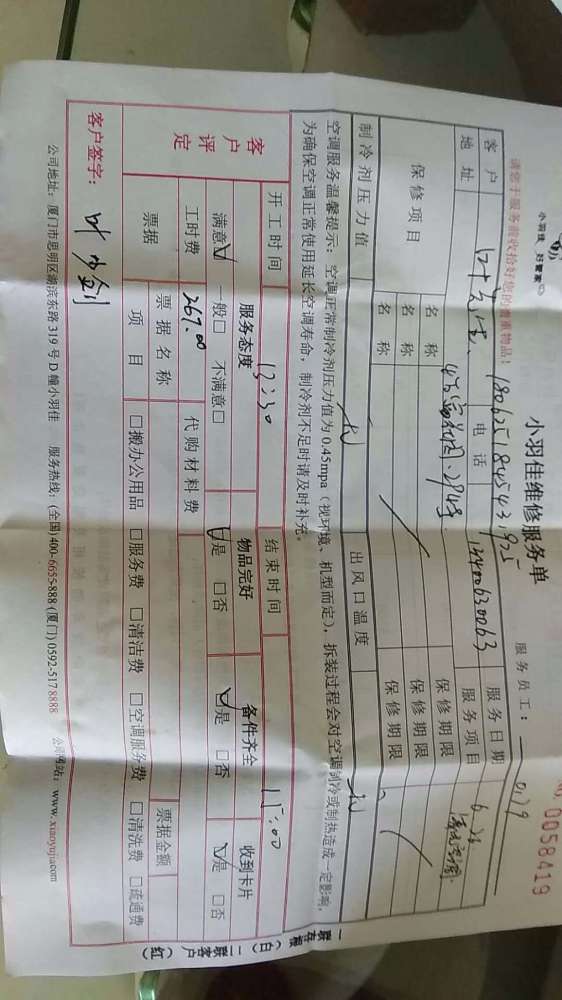 小羽佳 好管家
小羽佳维修服务单
0058419
请您于服务前收拾好您的贵重物品!
服务员工: 0129
客户 叶先生、1806251845431925 电话 13400630063 服务日期 6.26
地址 294号 服务项目
保修项目 名称 保修期限
名称 保修期限
名称 保修期限
制冷剂压力值 出风口温度
空调服务温馨提示:空调正常制冷剂压力值为0.45mpa(视环境、机型而定),拆装过程会对空调制冷或制热造成一定影响,
为确保空调正常使用延长空调寿命,制冷剂不足时请及时补充。
客户评定
开工时间 13:30 结束时间 15:00
服务态度 物品完好 备件齐全 收到卡片
满意☑ 一般□ 不满意□ ☑是 □否 ☑是 □否 ☑是 □否
工时费 267.00 代购材料费
票据 票据名称 票据金额
项目 □搬办公用品 □服务费 □清洁费 □空调服务费 □清洗费 □疏通费
客户签字:叶少剑
公司地址:厦门市思明区湖滨东路319号D幢小羽佳 服务热线:(全国)400-6655-888 (厦门) 0592-517 8888 公司网站:www.xiaoyujia.com
一联存根(白) 二联客户(红)